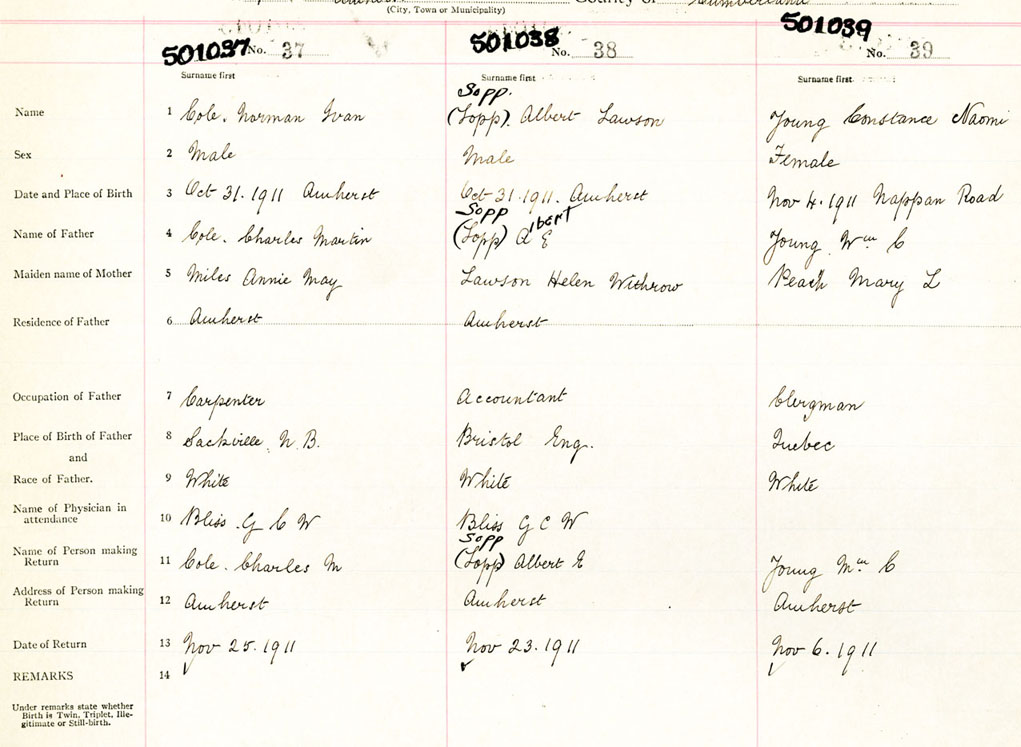 County of Cumberland
(City, Town or Municipality)
501037 No. 37 501038 No. 38 501039 No. 39
Surname first Surname first Surname first
Sopp.
Name 1 Cole. Norman Ivan (Lopp). Albert Lawson Young Constance Naomi
Sex 2 Male Male Female
Date and Place of Birth 3 Oct 31. 1911 Amherst Oct 31. 1911. Amherst Nov 4. 1911 Nappan Road
Sopp lbert
Name of Father 4 Cole. Charles Martin (Lopp) A E Young Wm C
Maiden name of Mother 5 Miles Annie May Lawson Helen Withrow Peach Mary L
Residence of Father 6 Amherst Amherst
Occupation of Father 7 Carpenter Accountant Clergman
Place of Birth of Father 8 Sackville N. B. Bristol Eng. Quebec
and
Race of Father. 9 White White White
Name of Physician in
attendance 10 Bliss G C W Bliss G C W
Sopp
Name of Person making
Return 11 Cole. Charles M (Lopp) Albert E Young Wm C
Address of Person making
Return 12 Amherst Amherst Amherst
Date of Return 13 Nov 25. 1911 Nov 23. 1911 Nov 6. 1911
REMARKS 14
Under remarks state whether
Birth is Twin, Triplet, Ille-
gitimate or Still-birth.